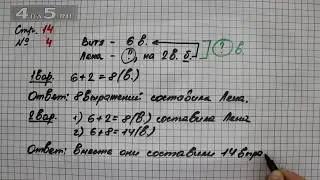 4a5.ru
Стр. 14
№ 4
Витя - 6 в.
Лена - ?, на 2 в. б.
? в.
1 вар. 6+2=8(в.)
Ответ: 8 выражений составила Лена.
2 вар. 1) 6+2=8(в.) составила Лена
2) 6+8=14(в.)
Ответ: вместе они составили 14 выра